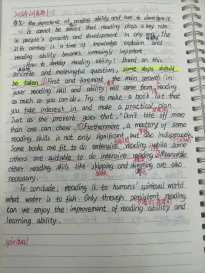 the importance of reading ability and how to develop it
It cannot be denied that reading plays a key role
in people's growth and development in any era. The
21st century is a time of knowledge explosion and
reading ability becomes immensely important
to develop reading ability? Based on this
concrete and meaningful question, some steps should
be taken. First and foremost, the main growth in
your reading skill and ability will come from reading
as much as you can do. Try to make a book list that
you take interest in, and make a practical plan
Just as the proverb goes that "Don't bite off more
than one can chew". Furthermore, a mastery of some
reading skills is not only significant but also indispensable
Some books are fit to do extensive reading while some
others are suitable to do intensive reading. Favourable
other reading skills like skipping and skimming are also
necessary.
To conclude, reading is to humans' spiritual world
what water is to fish. Only through persistent reading
can we enjoy the improvement of reading ability and
learning ability.
spiritual